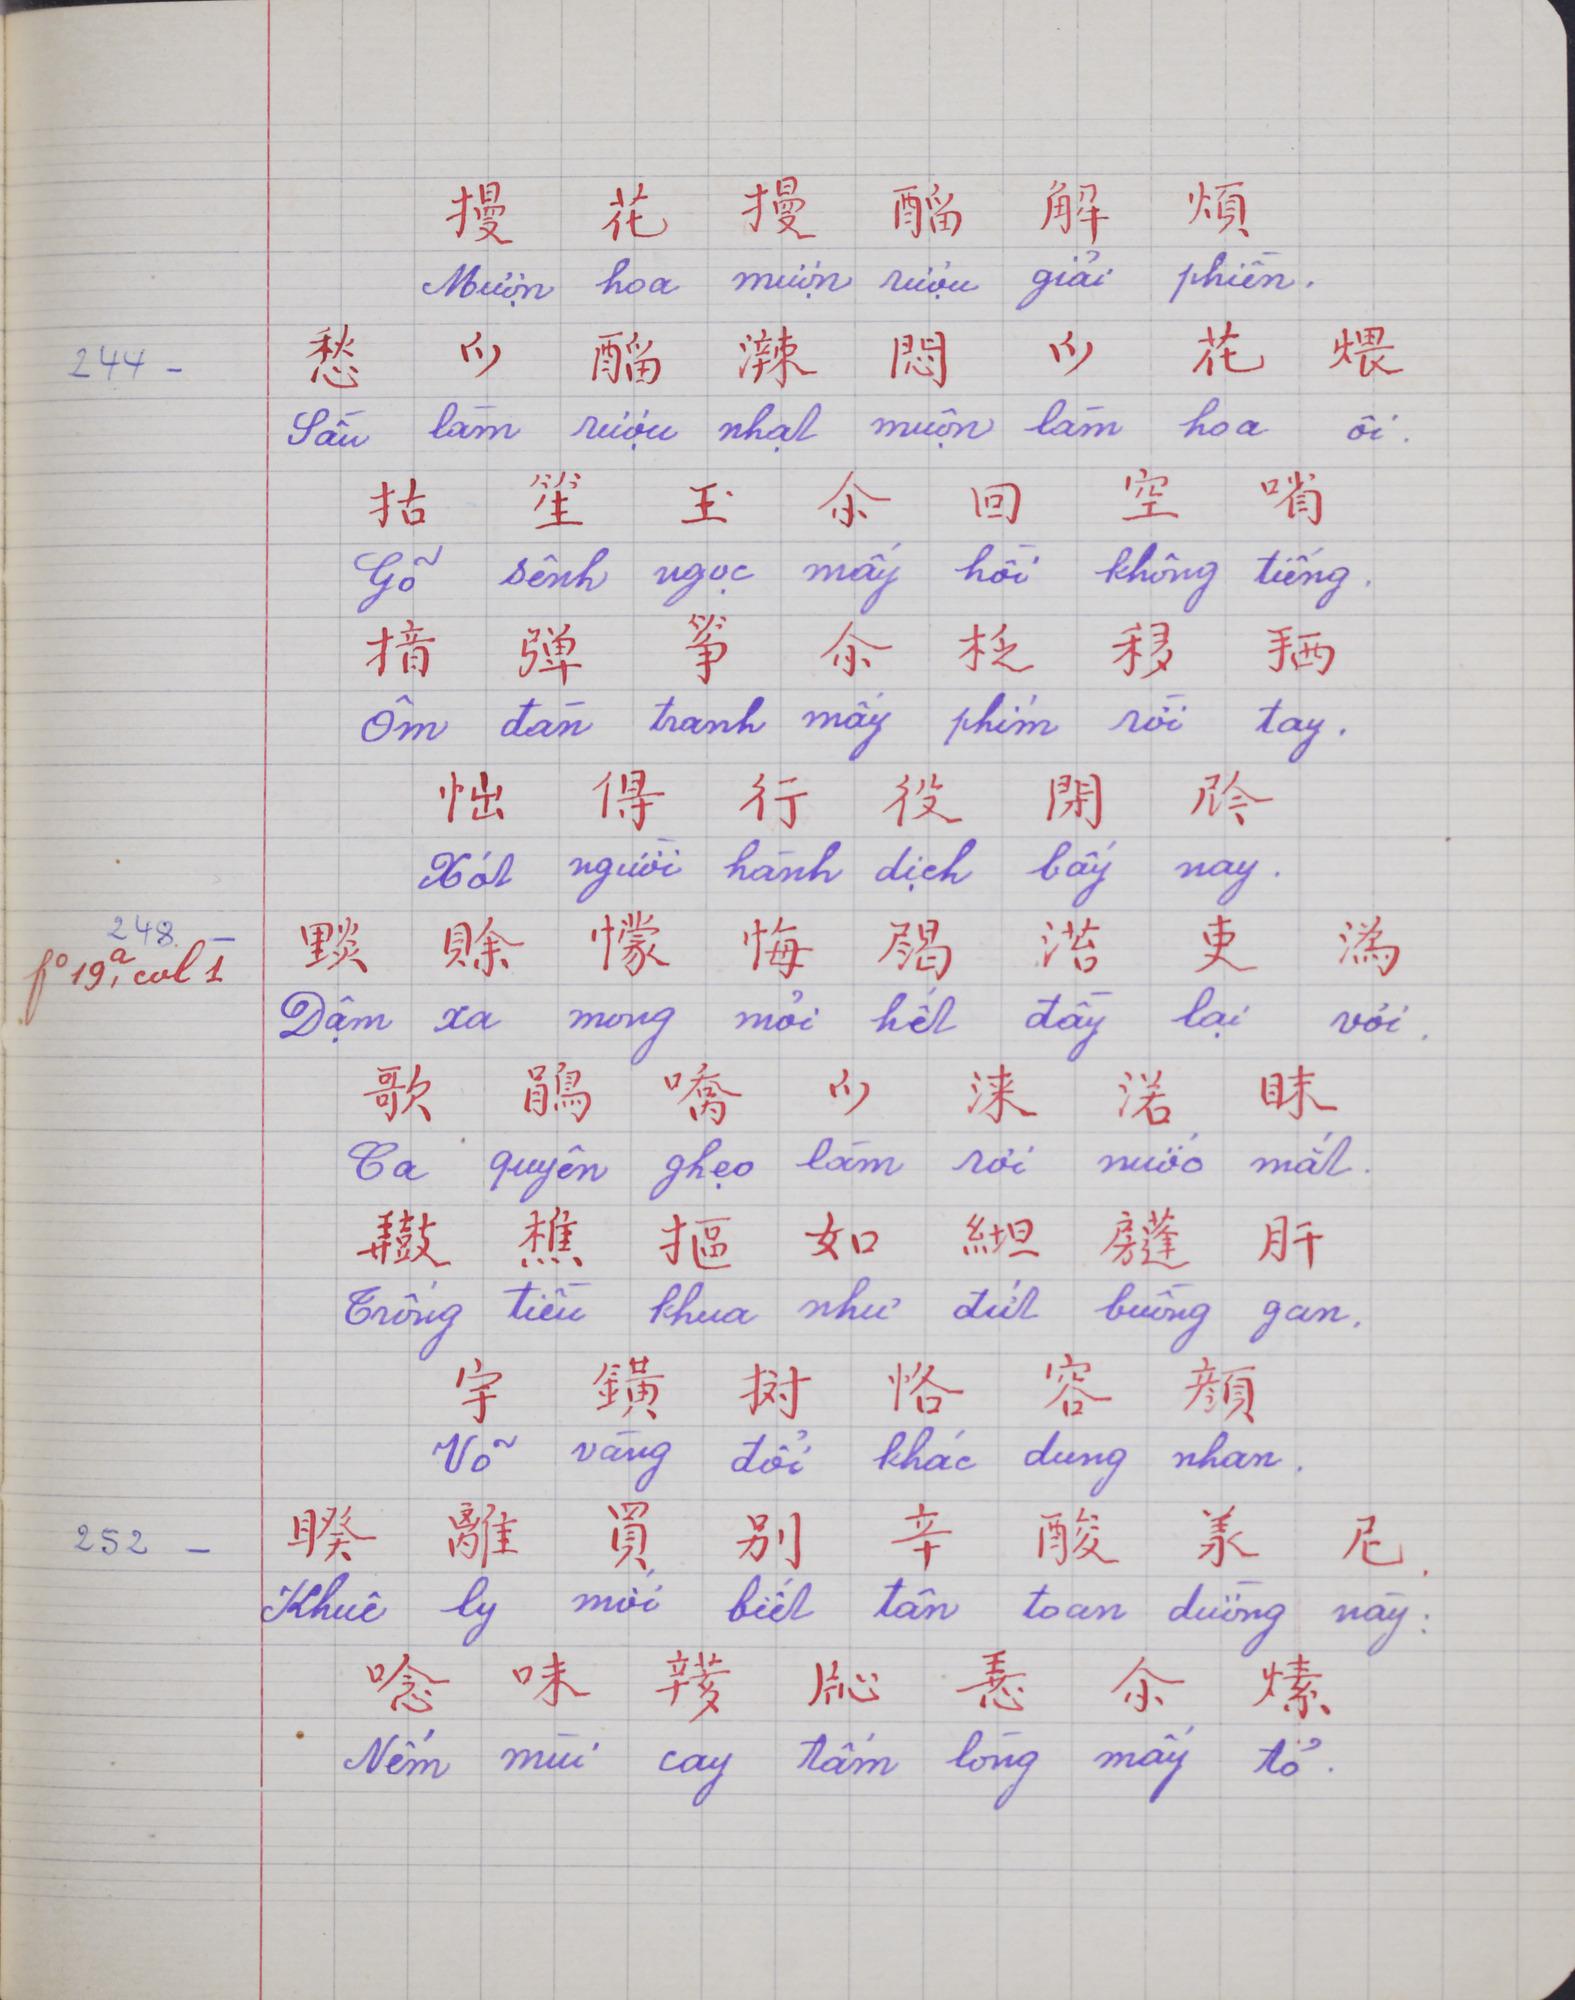 摱 花 摱 醙 解 煩
Mượn hoa mượn rượu giải phiền.
244 - 愁 醙 悶 花 煨
Sầu làm rượu nhạt muộn làm hoa ôi.
拈 笙 玉 余 回 空 哨
Gõ sênh ngọc mấy hồi không tiếng.
揞 弾 筝 余 柉 移 拪
Ôm đàn tranh mấy phím rời tay.
怞 得 行 役 閉
Xót người hành dịch bấy nay.
248 - 賒 懞 悔 吏 潙
fº 19, a col 1
Dặm xa mong mỏi hết đầy lại vơi.
歌 鵑 嘺 淶 渃 眜
Ca quyên ghẹo làm rơi nước mắt.
樵 摳 如 肝
Trống tiều khua như đứt buồng gan.
鐄 恪 容 顔
Võ vàng đổi khác dung nhan.
252 - 睽 離 買 别 辛 酸 羕 尼.
Khuê ly mới biết tân toan dường này:
唸 味 余
Nếm mùi cay tấm lòng mấy tỏ.